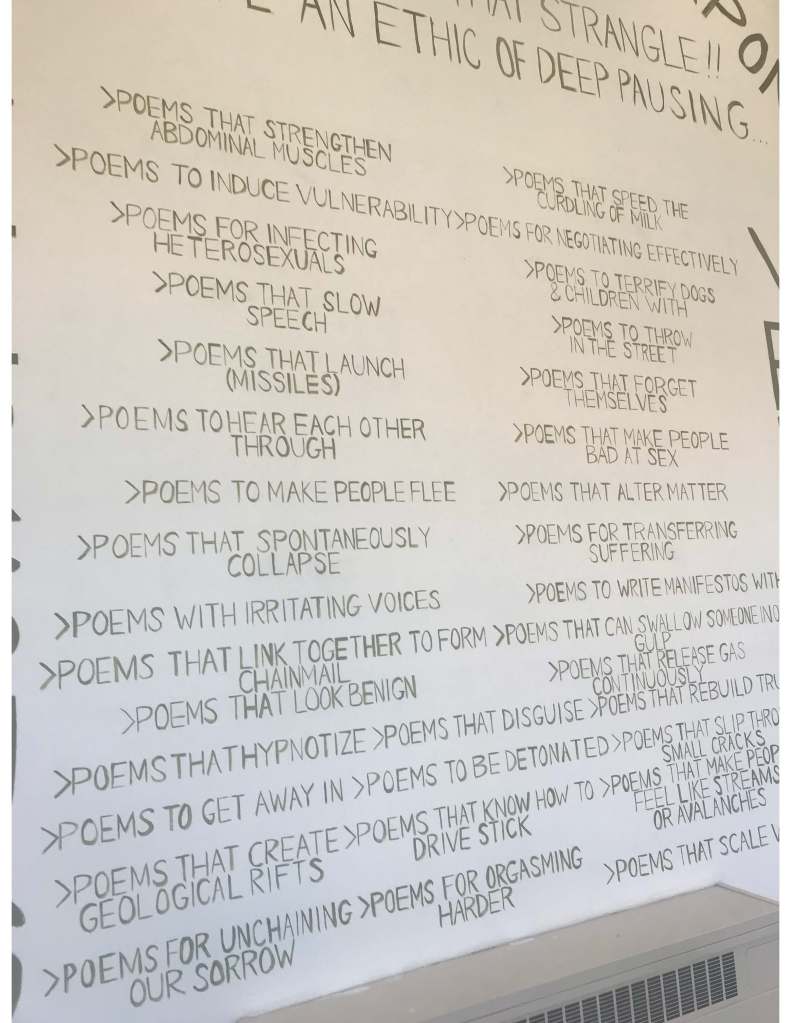 THAT STRANGLE!!
AN ETHIC OF DEEP PAUSING...
>POEMS THAT STRENGTHEN
ABDOMINAL MUSCLES
>POEMS TO INDUCE VULNERABILITY
>POEMS FOR INFECTING
HETEROSEXUALS
>POEMS THAT SLOW
SPEECH
>POEMS THAT LAUNCH
(MISSILES)
>POEMS TO HEAR EACH OTHER
THROUGH
>POEMS TO MAKE PEOPLE FLEE
>POEMS THAT SPONTANEOUSLY
COLLAPSE
>POEMS WITH IRRITATING VOICES
>POEMS THAT LINK TOGETHER TO FORM
CHAINMAIL
>POEMS THAT LOOK BENIGN
>POEMS THAT SPEED THE
CURDLING OF MILK
>POEMS FOR NEGOTIATING EFFECTIVELY
>POEMS TO TERRIFY DOGS
& CHILDREN WITH
>POEMS TO THROW
IN THE STREET
>POEMS THAT FORGET
THEMSELVES
>POEMS THAT MAKE PEOPLE
BAD AT SEX
>POEMS THAT ALTER MATTER
>POEMS FOR TRANSFERRING
SUFFERING
>POEMS TO WRITE MANIFESTOS WITH
>POEMS THAT CAN SWALLOW SOMEONE IN O
GULP
>POEMS THAT RELEASE GAS
CONTINUOUSLY
>POEMS THAT HYPNOTIZE >POEMS THAT DISGUISE >POEMS THAT REBUILD TRU
>POEMS TO GET AWAY IN >POEMS TO BE DETONATED >POEMS THAT SLIP THRO
SMALL CRACKS
>POEMS THAT CREATE
GEOLOGICAL RIFTS
>POEMS THAT KNOW HOW TO
DRIVE STICK
>POEMS THAT MAKE PEOP
FEEL LIKE STREAMS
OR AVALANCHES
>POEMS FOR UNCHAINING
OUR SORROW
>POEMS FOR ORGASMING
HARDER
>POEMS THAT SCALE